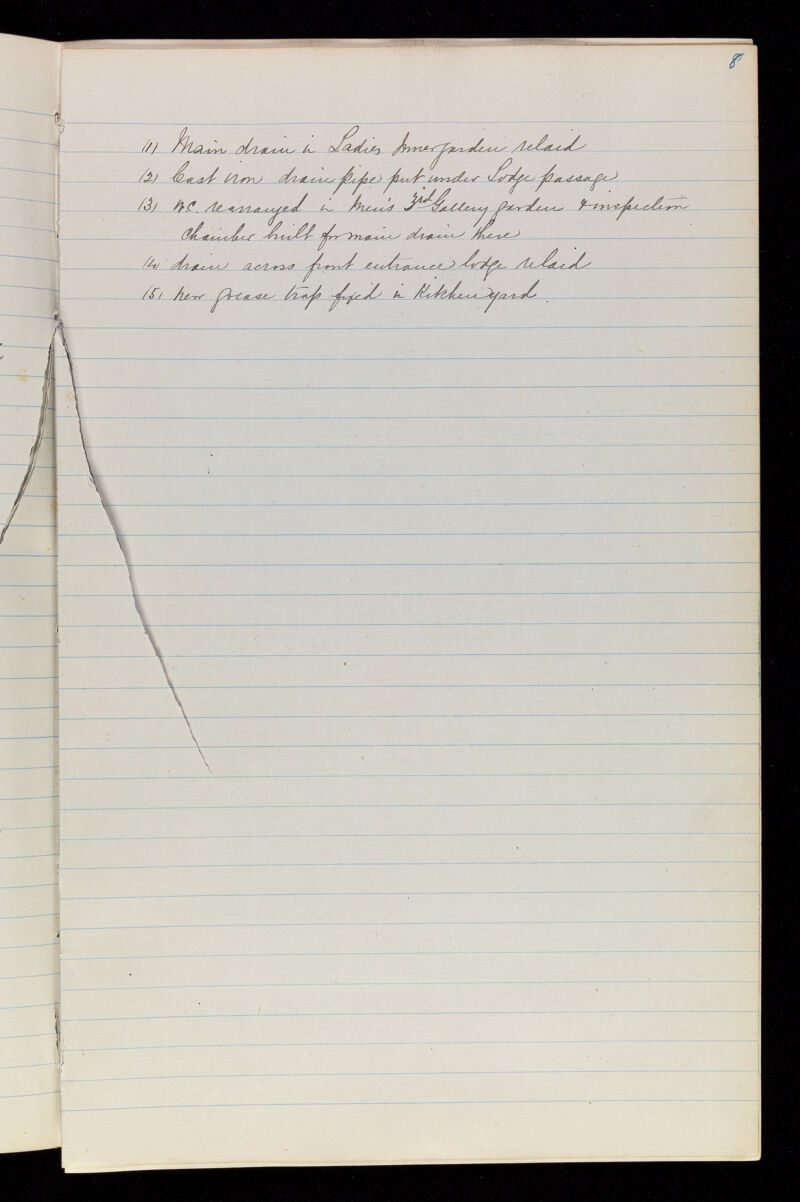 8
(1) Main drain in Ladies Inner garden relaid
(2) Cast iron drain pipe put under Lodge passage
(3) W.C. rearranged in Men's 3rd Gallery garden & inspection
chamber built for main drain there
(4) drain across front entrance lodge relaid
(5) new grease trap fixed in Kitchen yard.